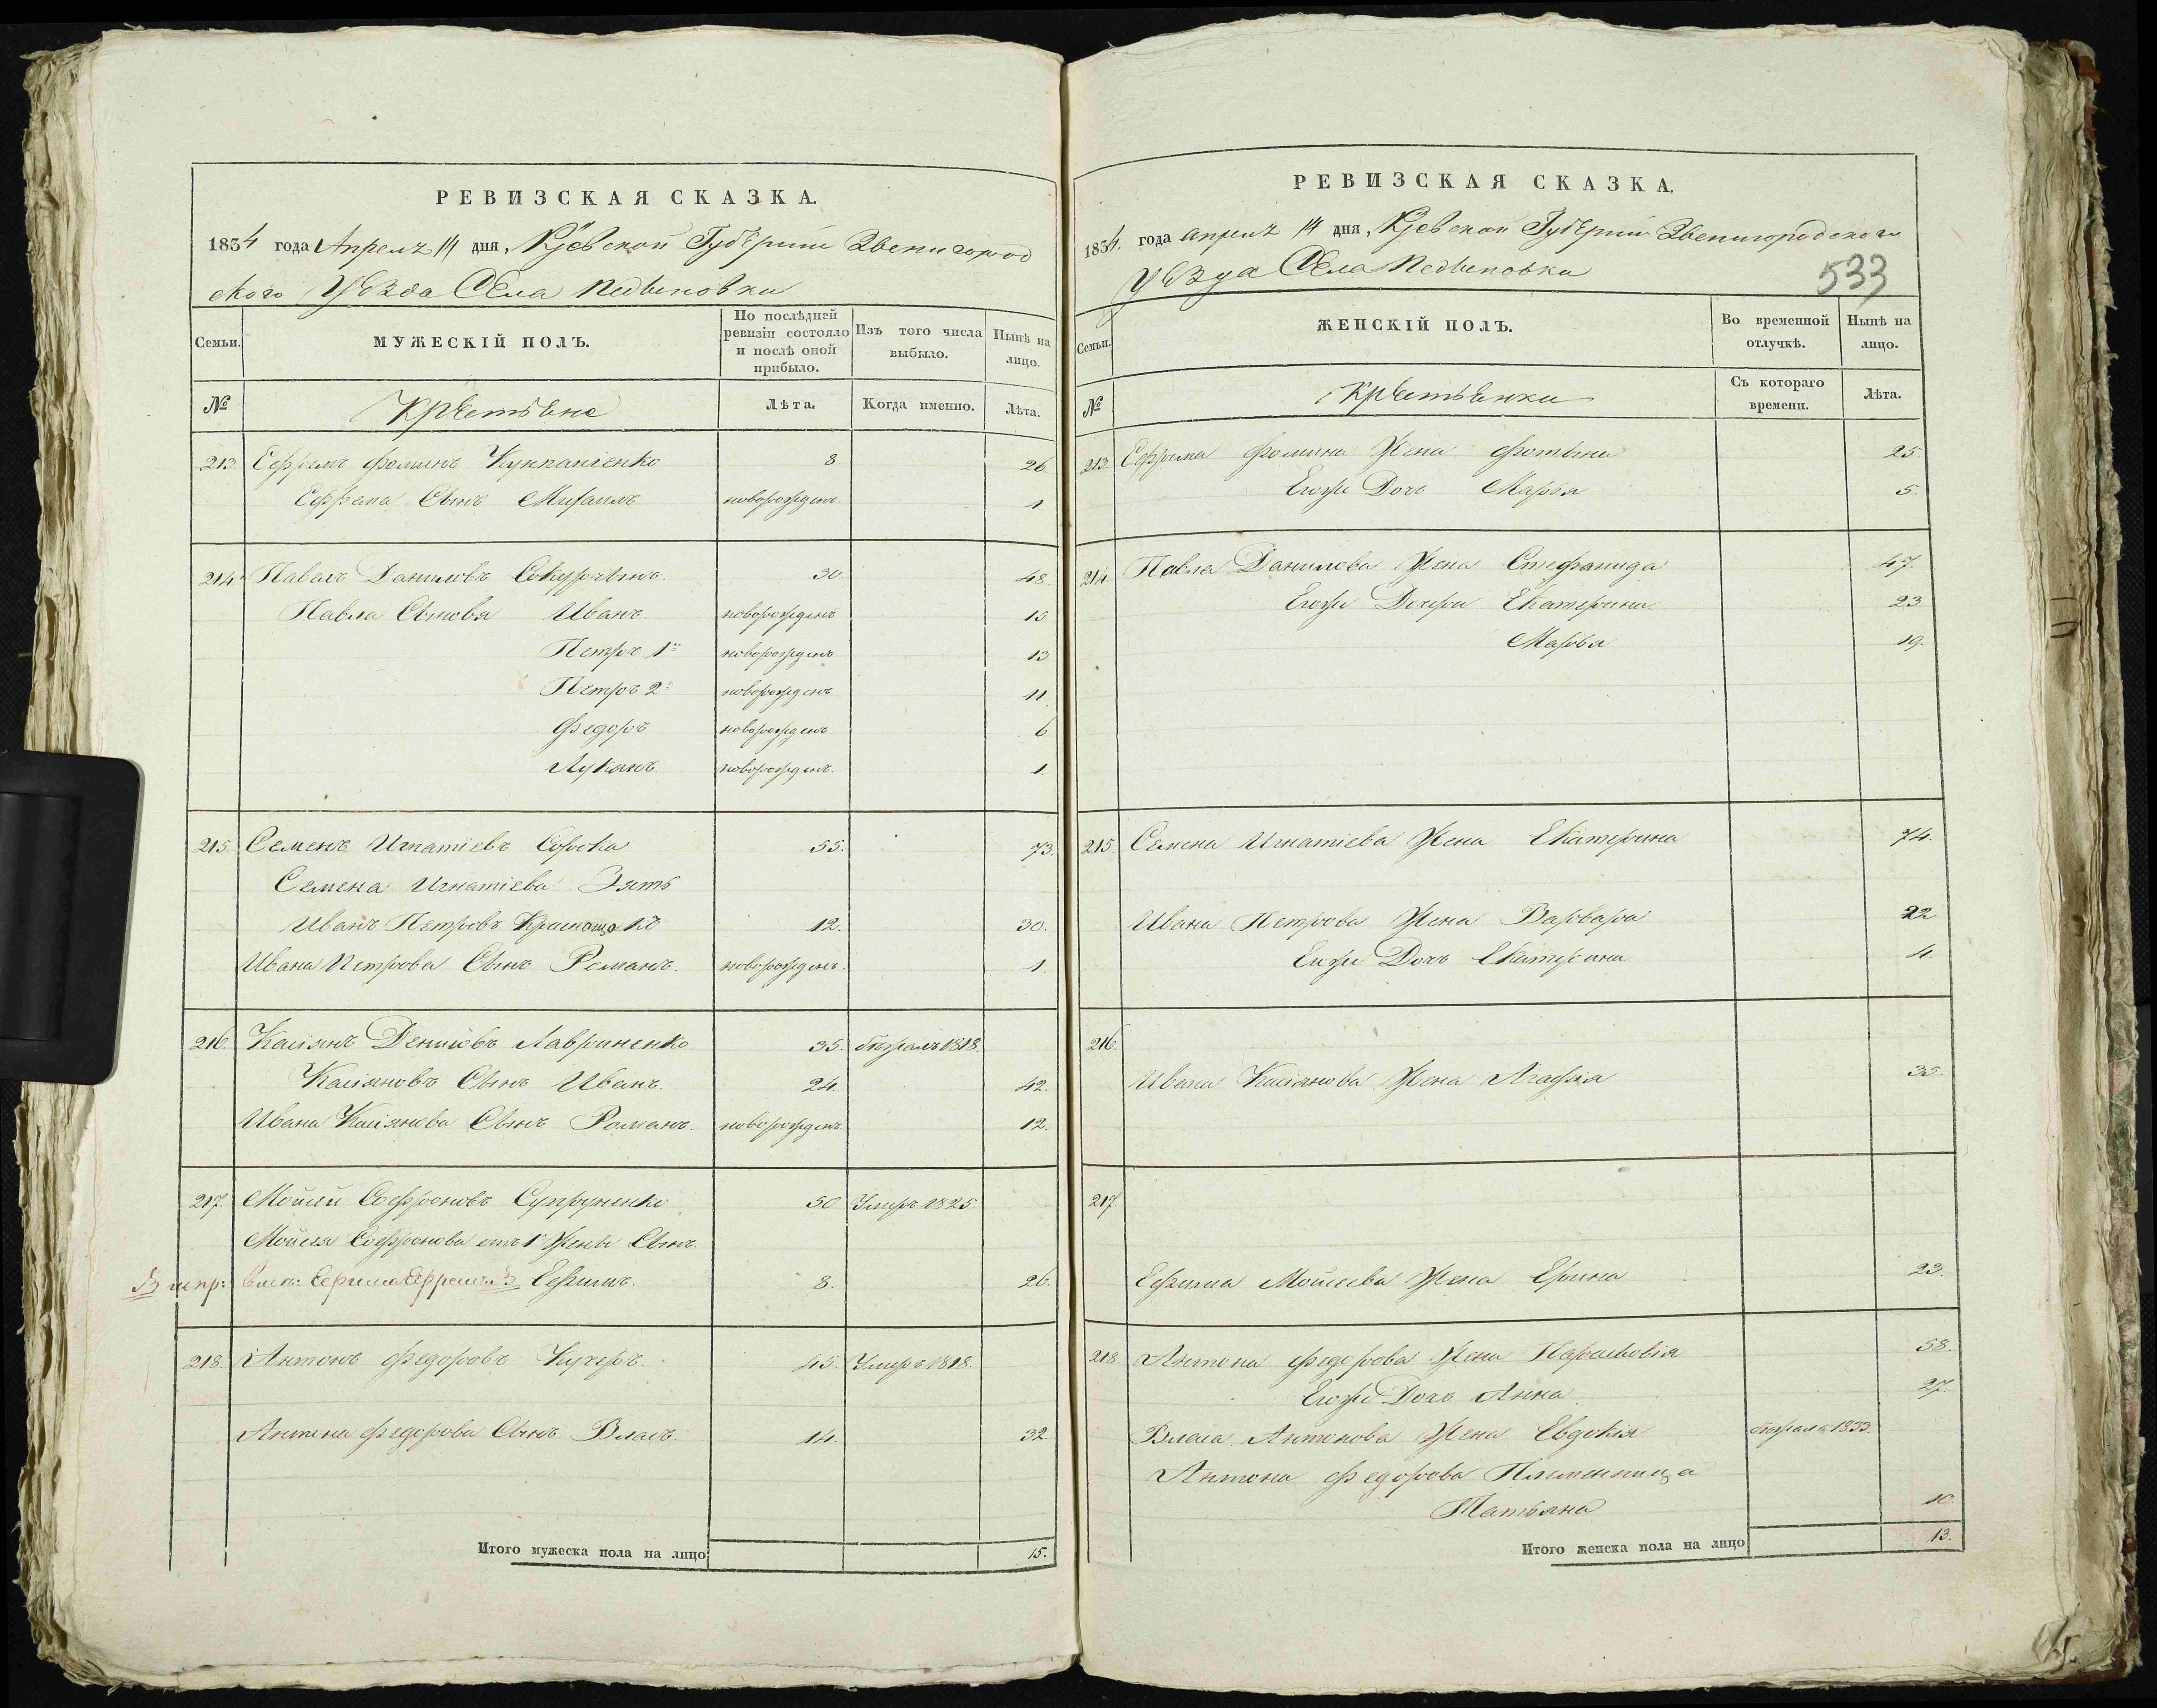 РЕВИЗСКАЯ СКАЗКА.
1834 года Апреля 14 дня, Кіевской Губерніи Звенигород
ского Уѣзда Села
Семьи. МУЖЕСКІЙ ПОЛЪ. По послѣдней ревизіи состояло и послѣ оной прибыло. Изъ того числа выбыло. Нынѣ на лицо.
№ Крестьяне Лѣта. Когда именно. Лѣта.
213. Ефремъ Фоминъ 8 26
Ефрема Сынъ Михаилъ новорожденъ 1
214. Павелъ Даниловъ 30 48
Павла Сыновья Иванъ. новорожденъ 15
Петръ 1й новорожденъ 13
Петръ 2й новорожденъ 11
Федоръ новорожденъ 6
Лукьянъ новорожденъ 1
215. Семенъ Игнатіевъ Сорока 55. 73.
Семена Игнатіева Зять
Иванъ Петровъ 12. 30.
Ивана Петрова Сынъ Романъ. новорожденъ. 1
216. Касіянъ Денисовъ Лавриненко 35. бѣжалъ 1818.
Касіяновъ Сынъ Иванъ. 24. 42.
Ивана Касіянова Сынъ Романъ. новорожденъ 12.
217. Мойсей Софроновъ Супруненко 50 Умеръ 1825.
Мойсея Софронова отъ 1й Жены Сынъ
Ефимъ. 8. 26.
218. Антонъ Федоровъ Кучеръ. 45. Умеръ 1818.
Антона Федорова Сынъ Власъ. 14. 32
Итого мужеска пола на лицо 15.
РЕВИЗСКАЯ СКАЗКА.
1834. года апреля 14 дня, Кіевской Губерніи Звенигородского
Уѣзда Села
533
Семьи. ЖЕНСКІЙ ПОЛЪ. Во временной отлучкѣ. Нынѣ на лицо.
№ Крестьянки Съ котораго времени. Лѣта.
213. Ефрема Фомина Жена Фотина 25.
Егоже Дочь Марія 5.
214 Павла Данилова Жена Стефанида 47.
Егоже Дочери Екатерина 23
Марія 19.
215. Семена Игнатіева Жена Екатерина 74.
Ивана Петрова Жена Варвара 22
Егоже Дочь Екатерина 4.
216.
Ивана Касіянова Жена Агафія 35.
217.
Ефима Мойсеева Жена Ирина 23.
218. Антона Федорова Жена Парасковія 58.
Егоже Дочь Анна 27.
Власа Антонова Жена Евдокія бѣжала 1833.
Антона Федорова Племенница
Татьяна 10.
Итого женска пола на лицо 13.